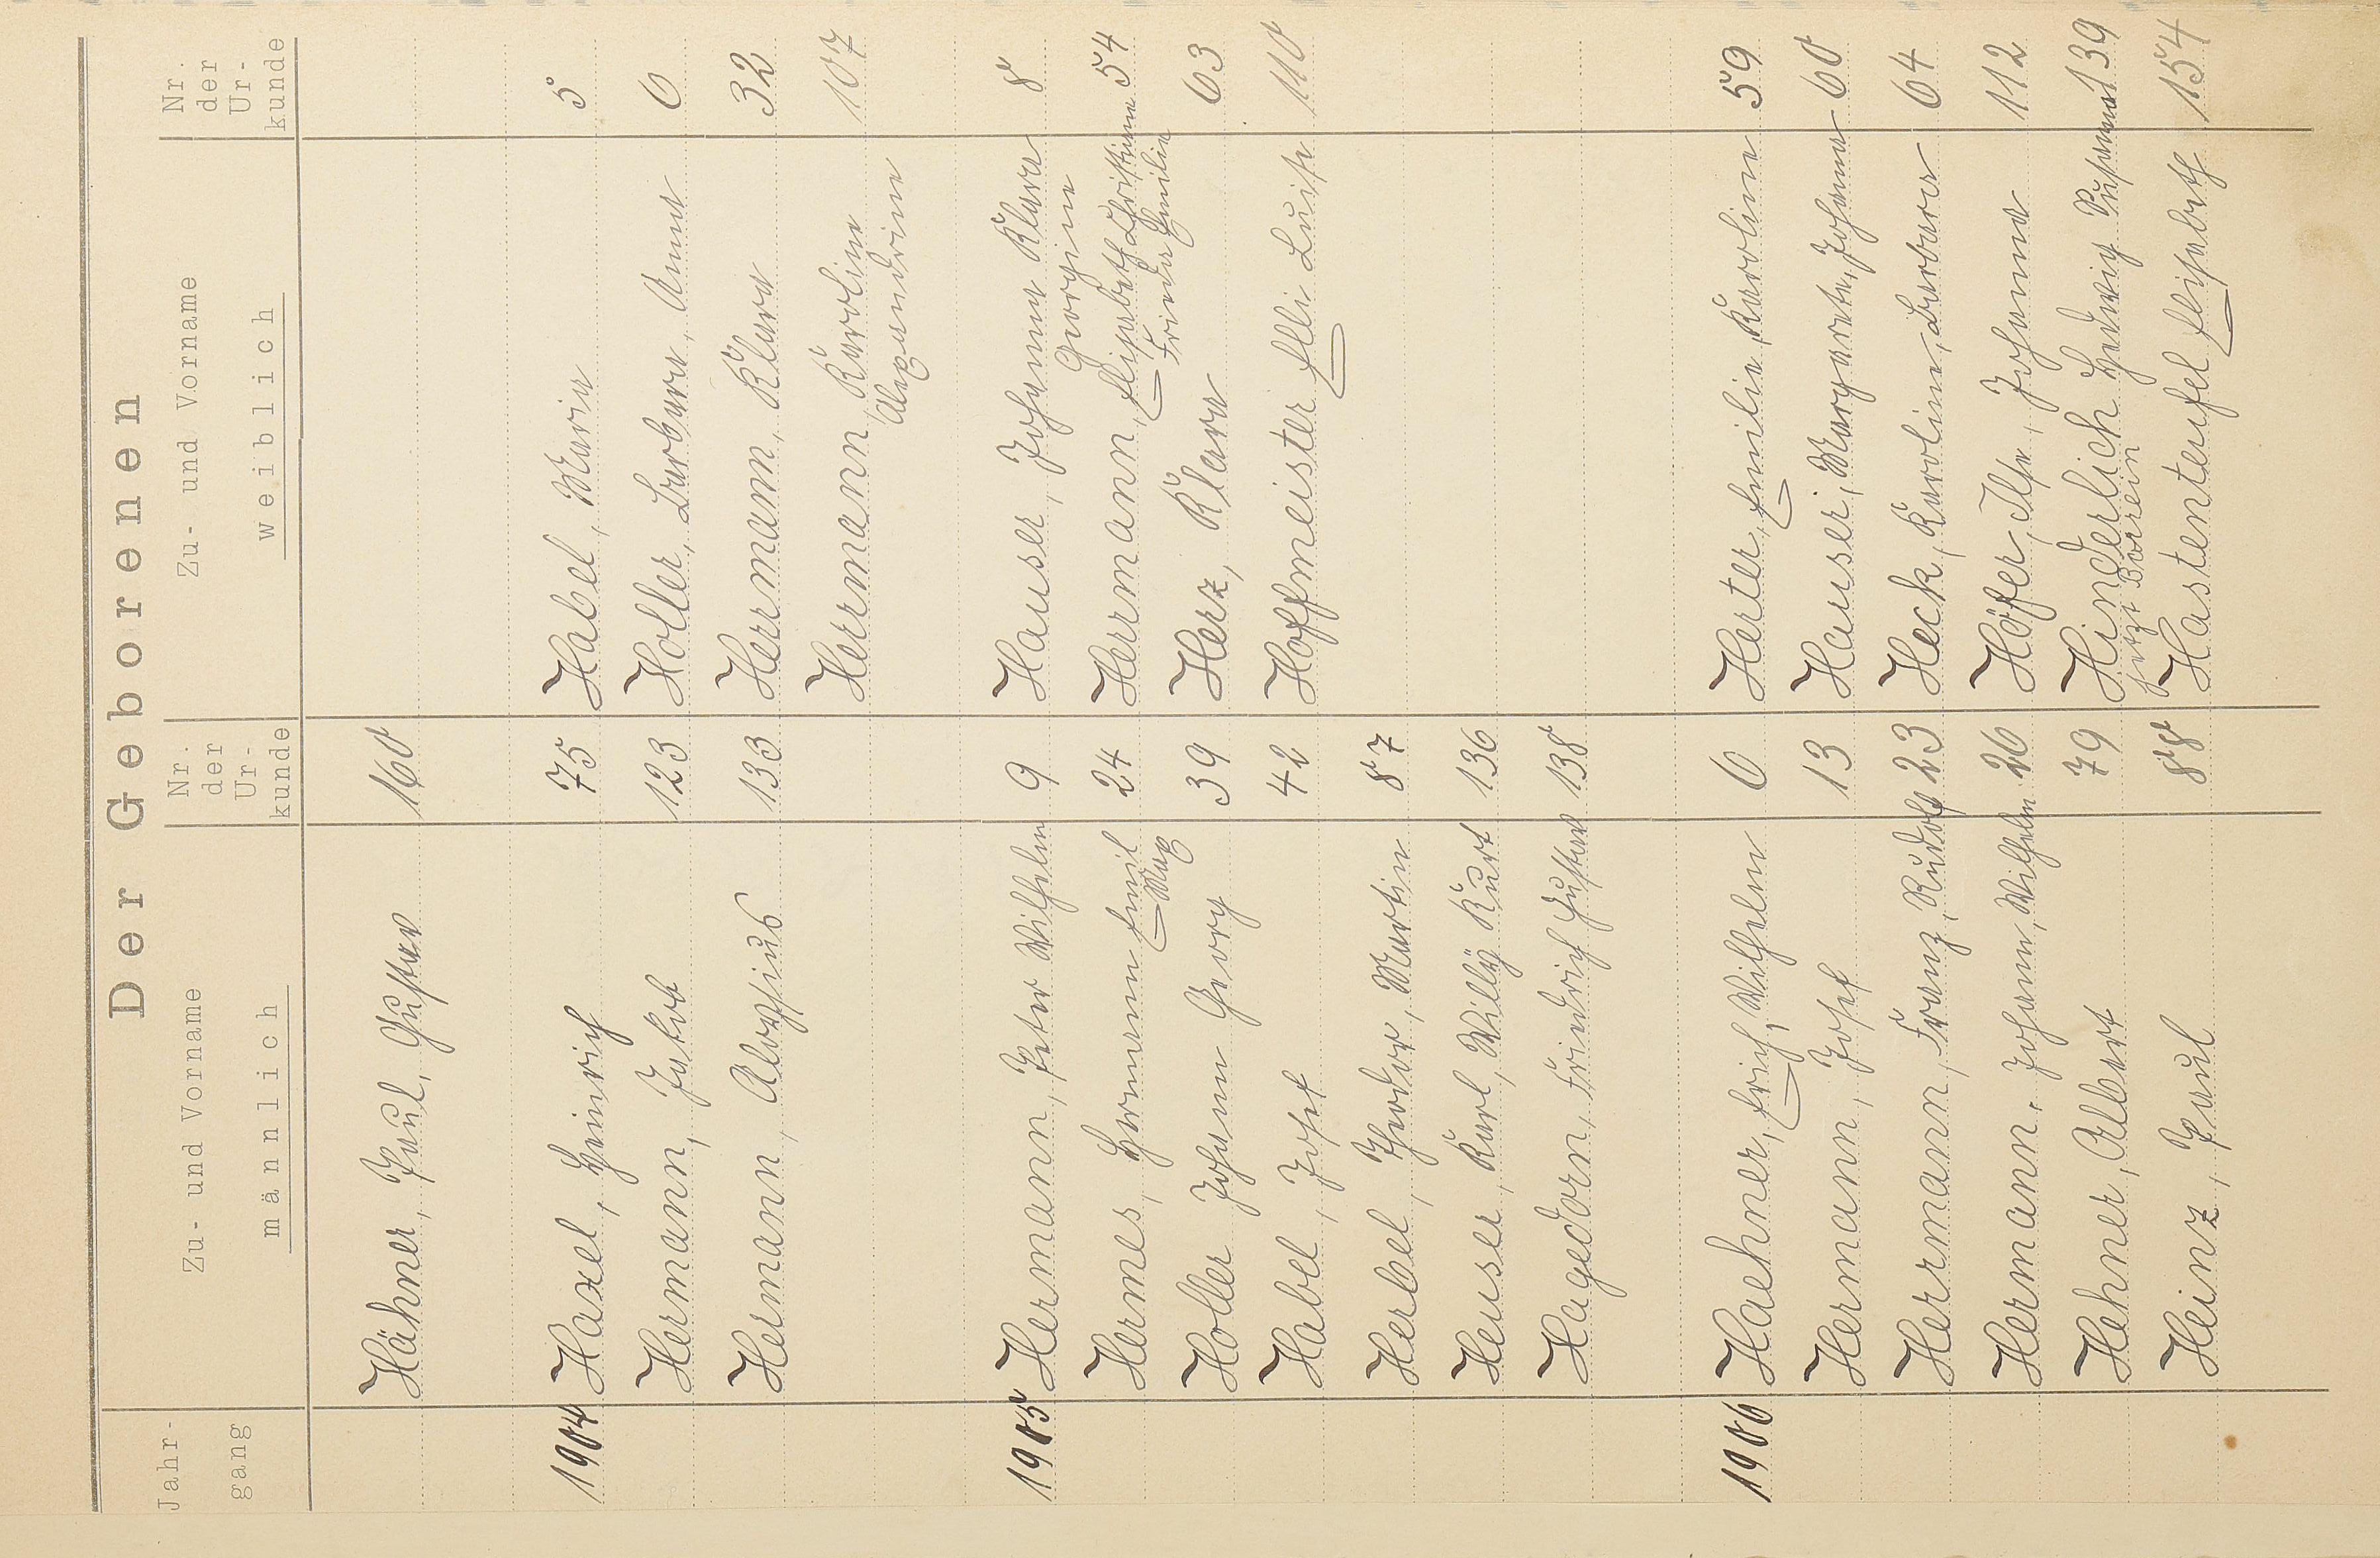 Der Geborenen
Jahrgang | Zu- und Vorname männlich | Nr. der Urkunde | Zu- und Vorname weiblich | Nr. der Urkunde
Hähner, Paul, Gustav 160
1904 Haxel, Heinrich 75 Habel, Maria 5
Hermann, Jakob 123 Holler, Barbara, Anna 6
Hermann, Aloysius 133 Herrmann, Klara 32
Herrmann, Karoline 107
Alexandrine
1905 Hermann, Peter Wilhelm 9 Hauser, Johanna Klara 8
Georgine
Hermes, Hermann Emil 24 Herrmann, Elisabeth Christiane 54
Max Frieda Emilie
Holler Johann Georg 39 Herz, Klara 63
Habel, Josef 42 Hoffmeister Elli Luise 110
Herbel, Theodor, Martin 87
Heuser, Karl, Willy Kurt 136
Hagedorn, Friedrich Gustav 138
1906 Haehner, Erich, Wilhelm 6 Herter, Emilie Karoline 59
Hermann, Josef 13 Hauser, Margareta, Johanna 60
Herrmann, Franz, Rudolf 23 Heck, Karoline, Barbara 64
Hermann, Johann, Wilhelm 26 Höfer, Ilse, Johanna 112
Hehner, Albert 79 Hinderlich Hedwig Susanna 139
jetzt Borrein
Heinz, Paul 88 Hastenteufel Elisabeth 154